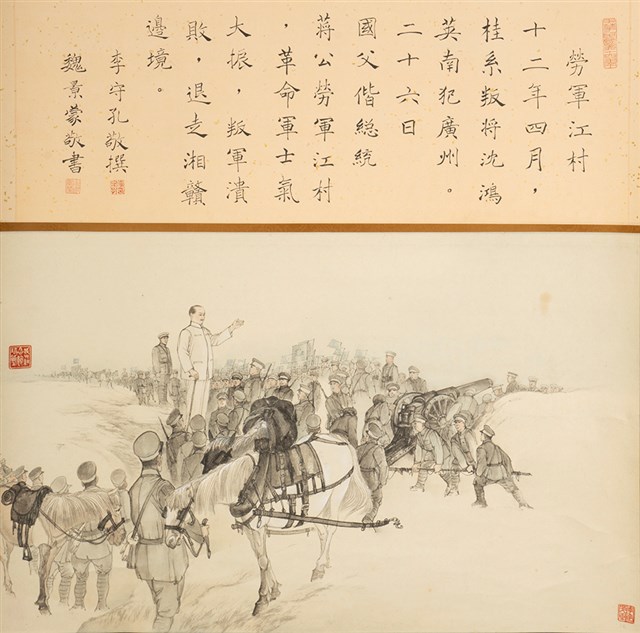 勞軍江村
十二年四月，
桂系叛將沈鴻
英南犯廣州。
二十六日
國父偕總統
蔣公勞軍江村
，革命軍士氣
大振，叛軍潰
敗，退走湘贛
邊境。
李守孔敬撰
魏景蒙敬書